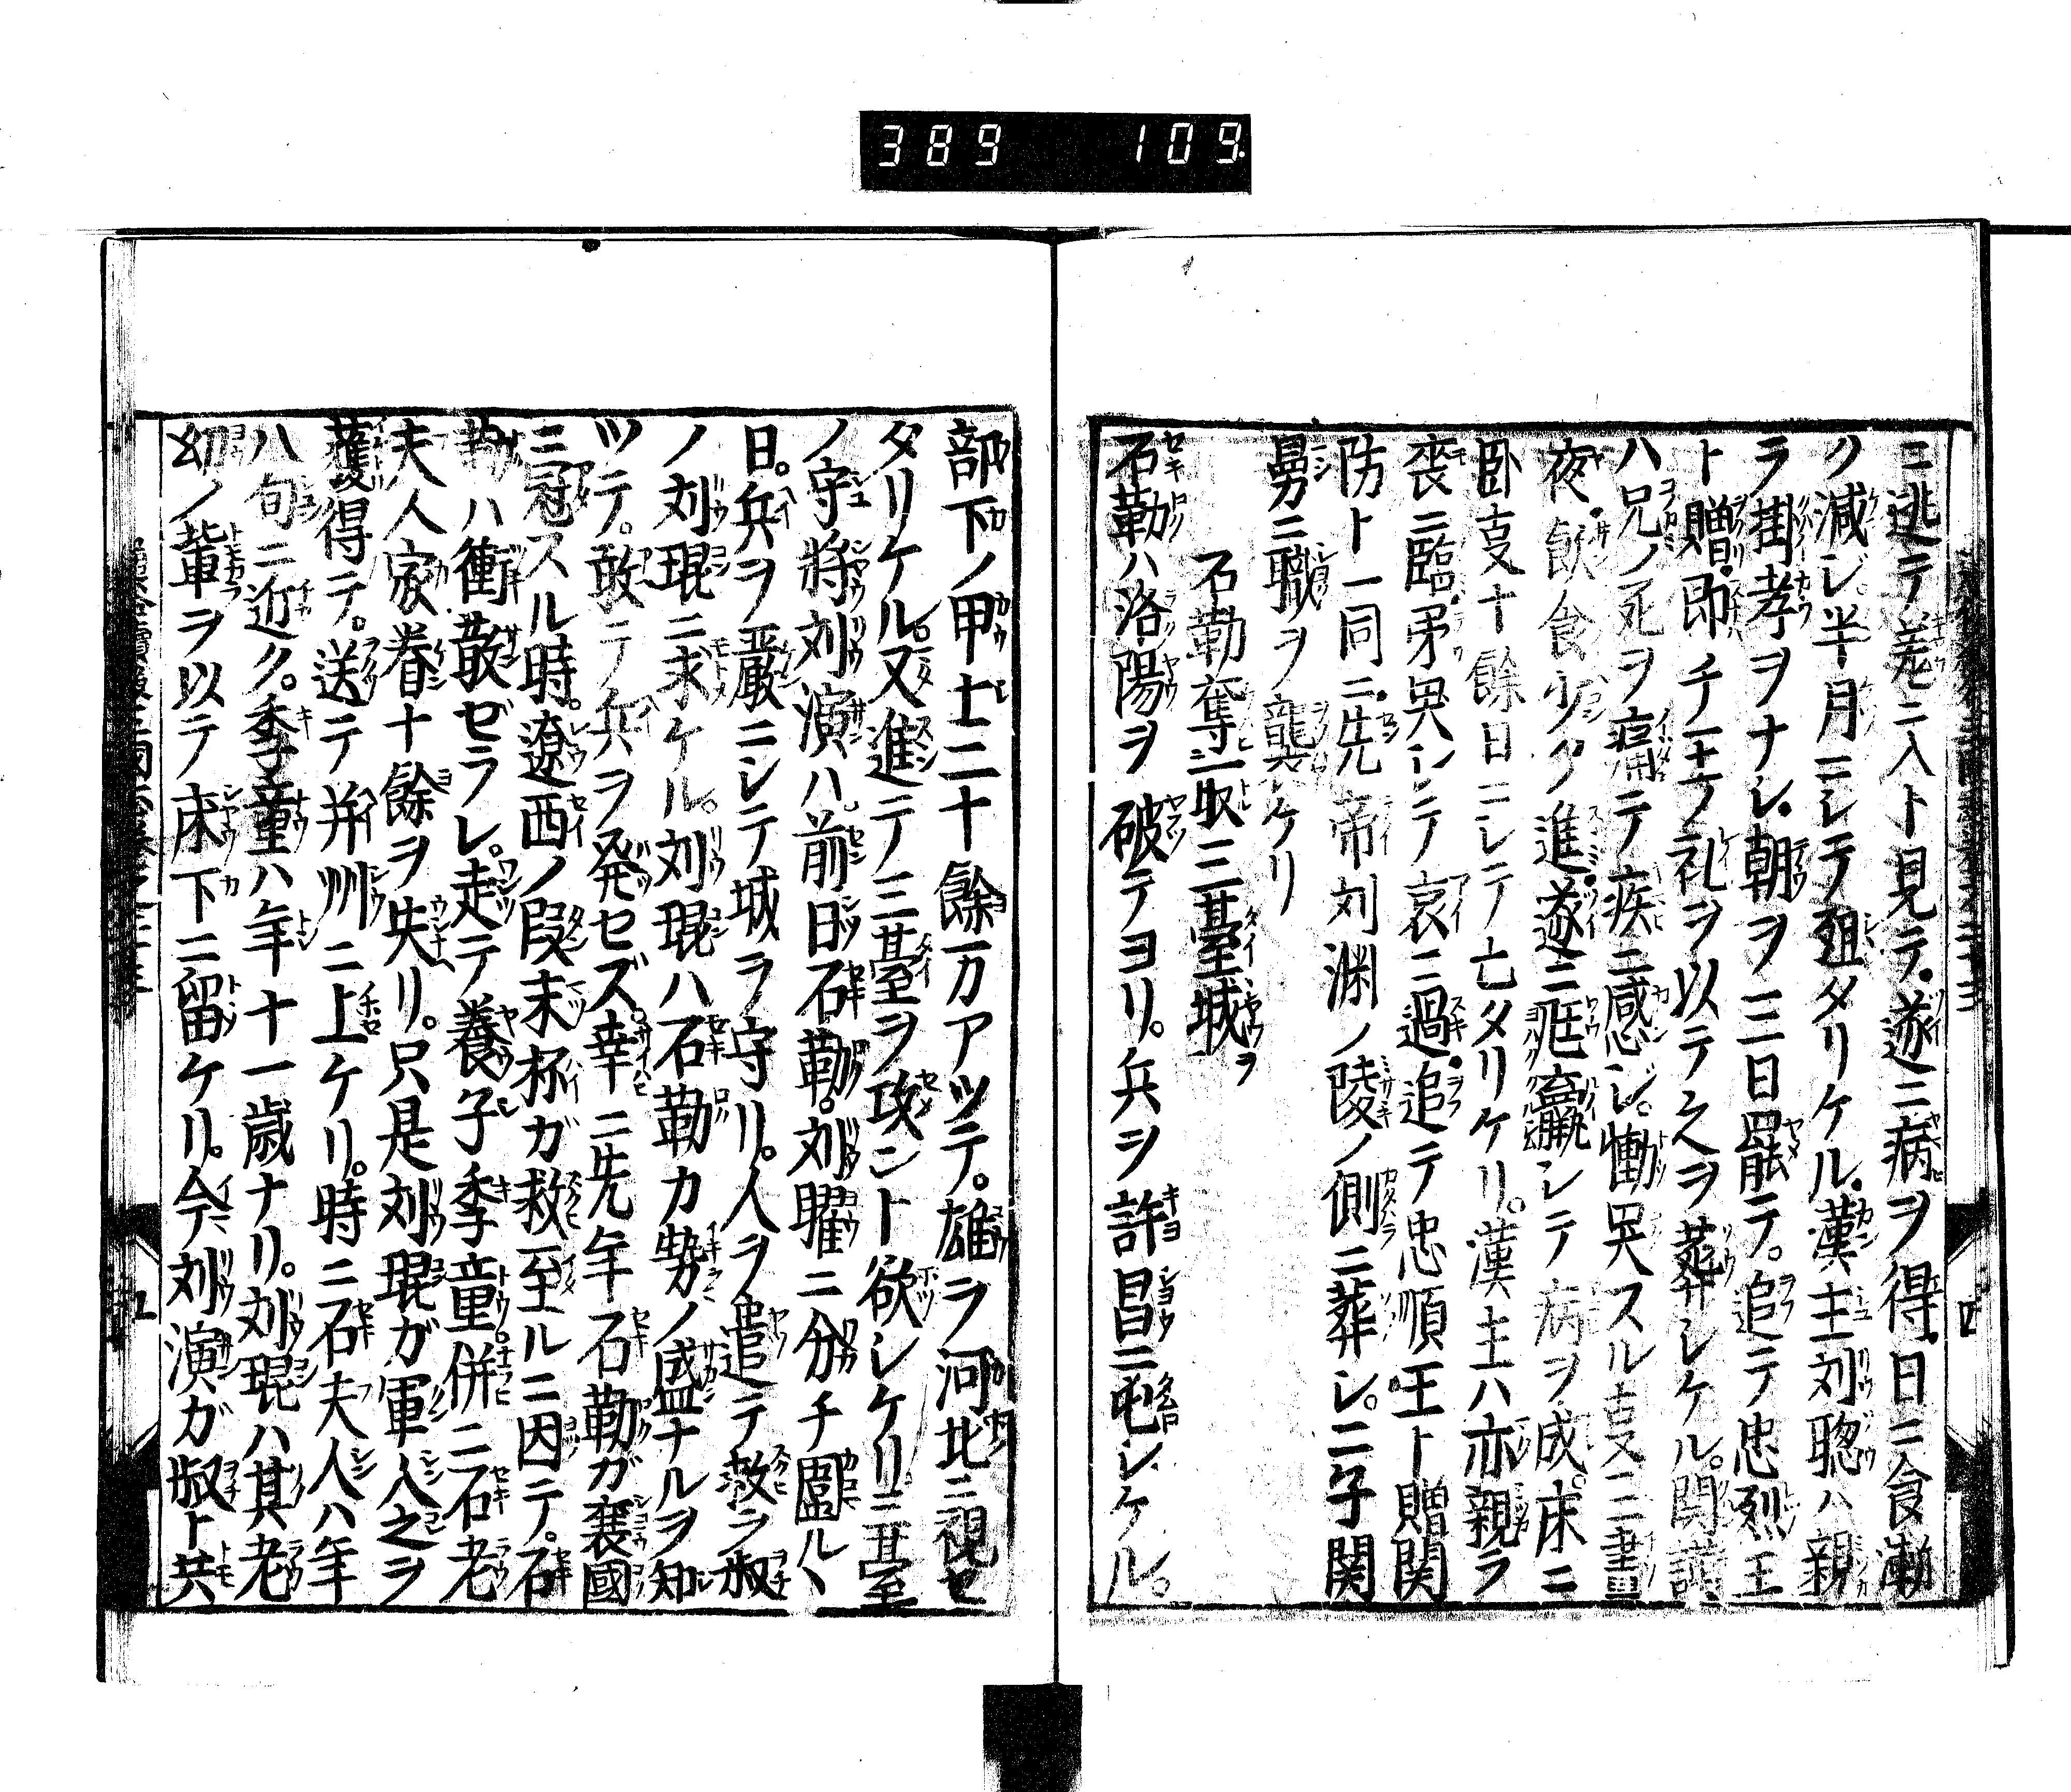 389 109
ニ逃テ差ニ入ト見テ遂ニ病ヲ得日ニ食漸
ク減ジ半月ニシテ殂タリケル漢主刘聡ハ親
ラ掛孝ヲナシ朝ヲ三日罷テ追テ忠烈王
ト贈即チ王ノ礼ヲ以テ之ヲ葬シケル関謹
ハ兄ノ死ヲ痛テ疾ニ感ジ慟哭スル叓ニ畫
夜飲食少ク進遂ニ尫羸シテ病ヲ成床ニ
臥叓十餘日ニシテ亡タリケリ漢主ハ亦親ラ
喪ニ臨弟哭シテ哀ニ過追テ忠順王ト贈関
防ト一同ニ先帝刘渊ノ陵ノ側ニ葬シ二子関
舅ニ職ヲ襲シケリ
石勒奪取三臺城ヲ
石勒ハ洛陽ヲ破テヨリ兵ヲ許昌ニ屯シケル
部下ノ甲士二十餘万アツテ雄ヲ河北ニ視セ
タリケル又進テ三臺ヲ攻ント欲シケリ三臺
ノ守將刘演ハ前日石勒刘曜ニ分チ圍ル丶
日兵ヲ嚴ニシテ城ヲ守リ人ヲ遣テ救ヲ叔
ノ刘琨ニ求ケル刘琨ハ石勒カ勢ノ盛ナルヲ知
ツテ敢テ兵ヲ発セズ幸ニ先年石勒ガ襄國
ニ冦スル時遼西ノ段末杯ガ救至ルニ因テ石
勒ハ衝散ゼラレ走テ養子季童併ニ石老
夫人家眷十餘ヲ失リ只是刘琨ガ軍人之ヲ
獲得テ送テ并州ニ上ケリ時ニ石夫人ハ年
八旬ニ近ク季童ハ年十一歳ナリ刘琨ハ其老
幼ノ輩ヲ以テ床下ニ留ケリ今刘演ガ叔ト共